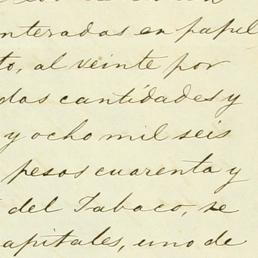 enteradas en papel
to, al veinte por
das cantidades y
y ocho mil seis
pesos cuarenta y
del Tabaco, se
apitales, uno de